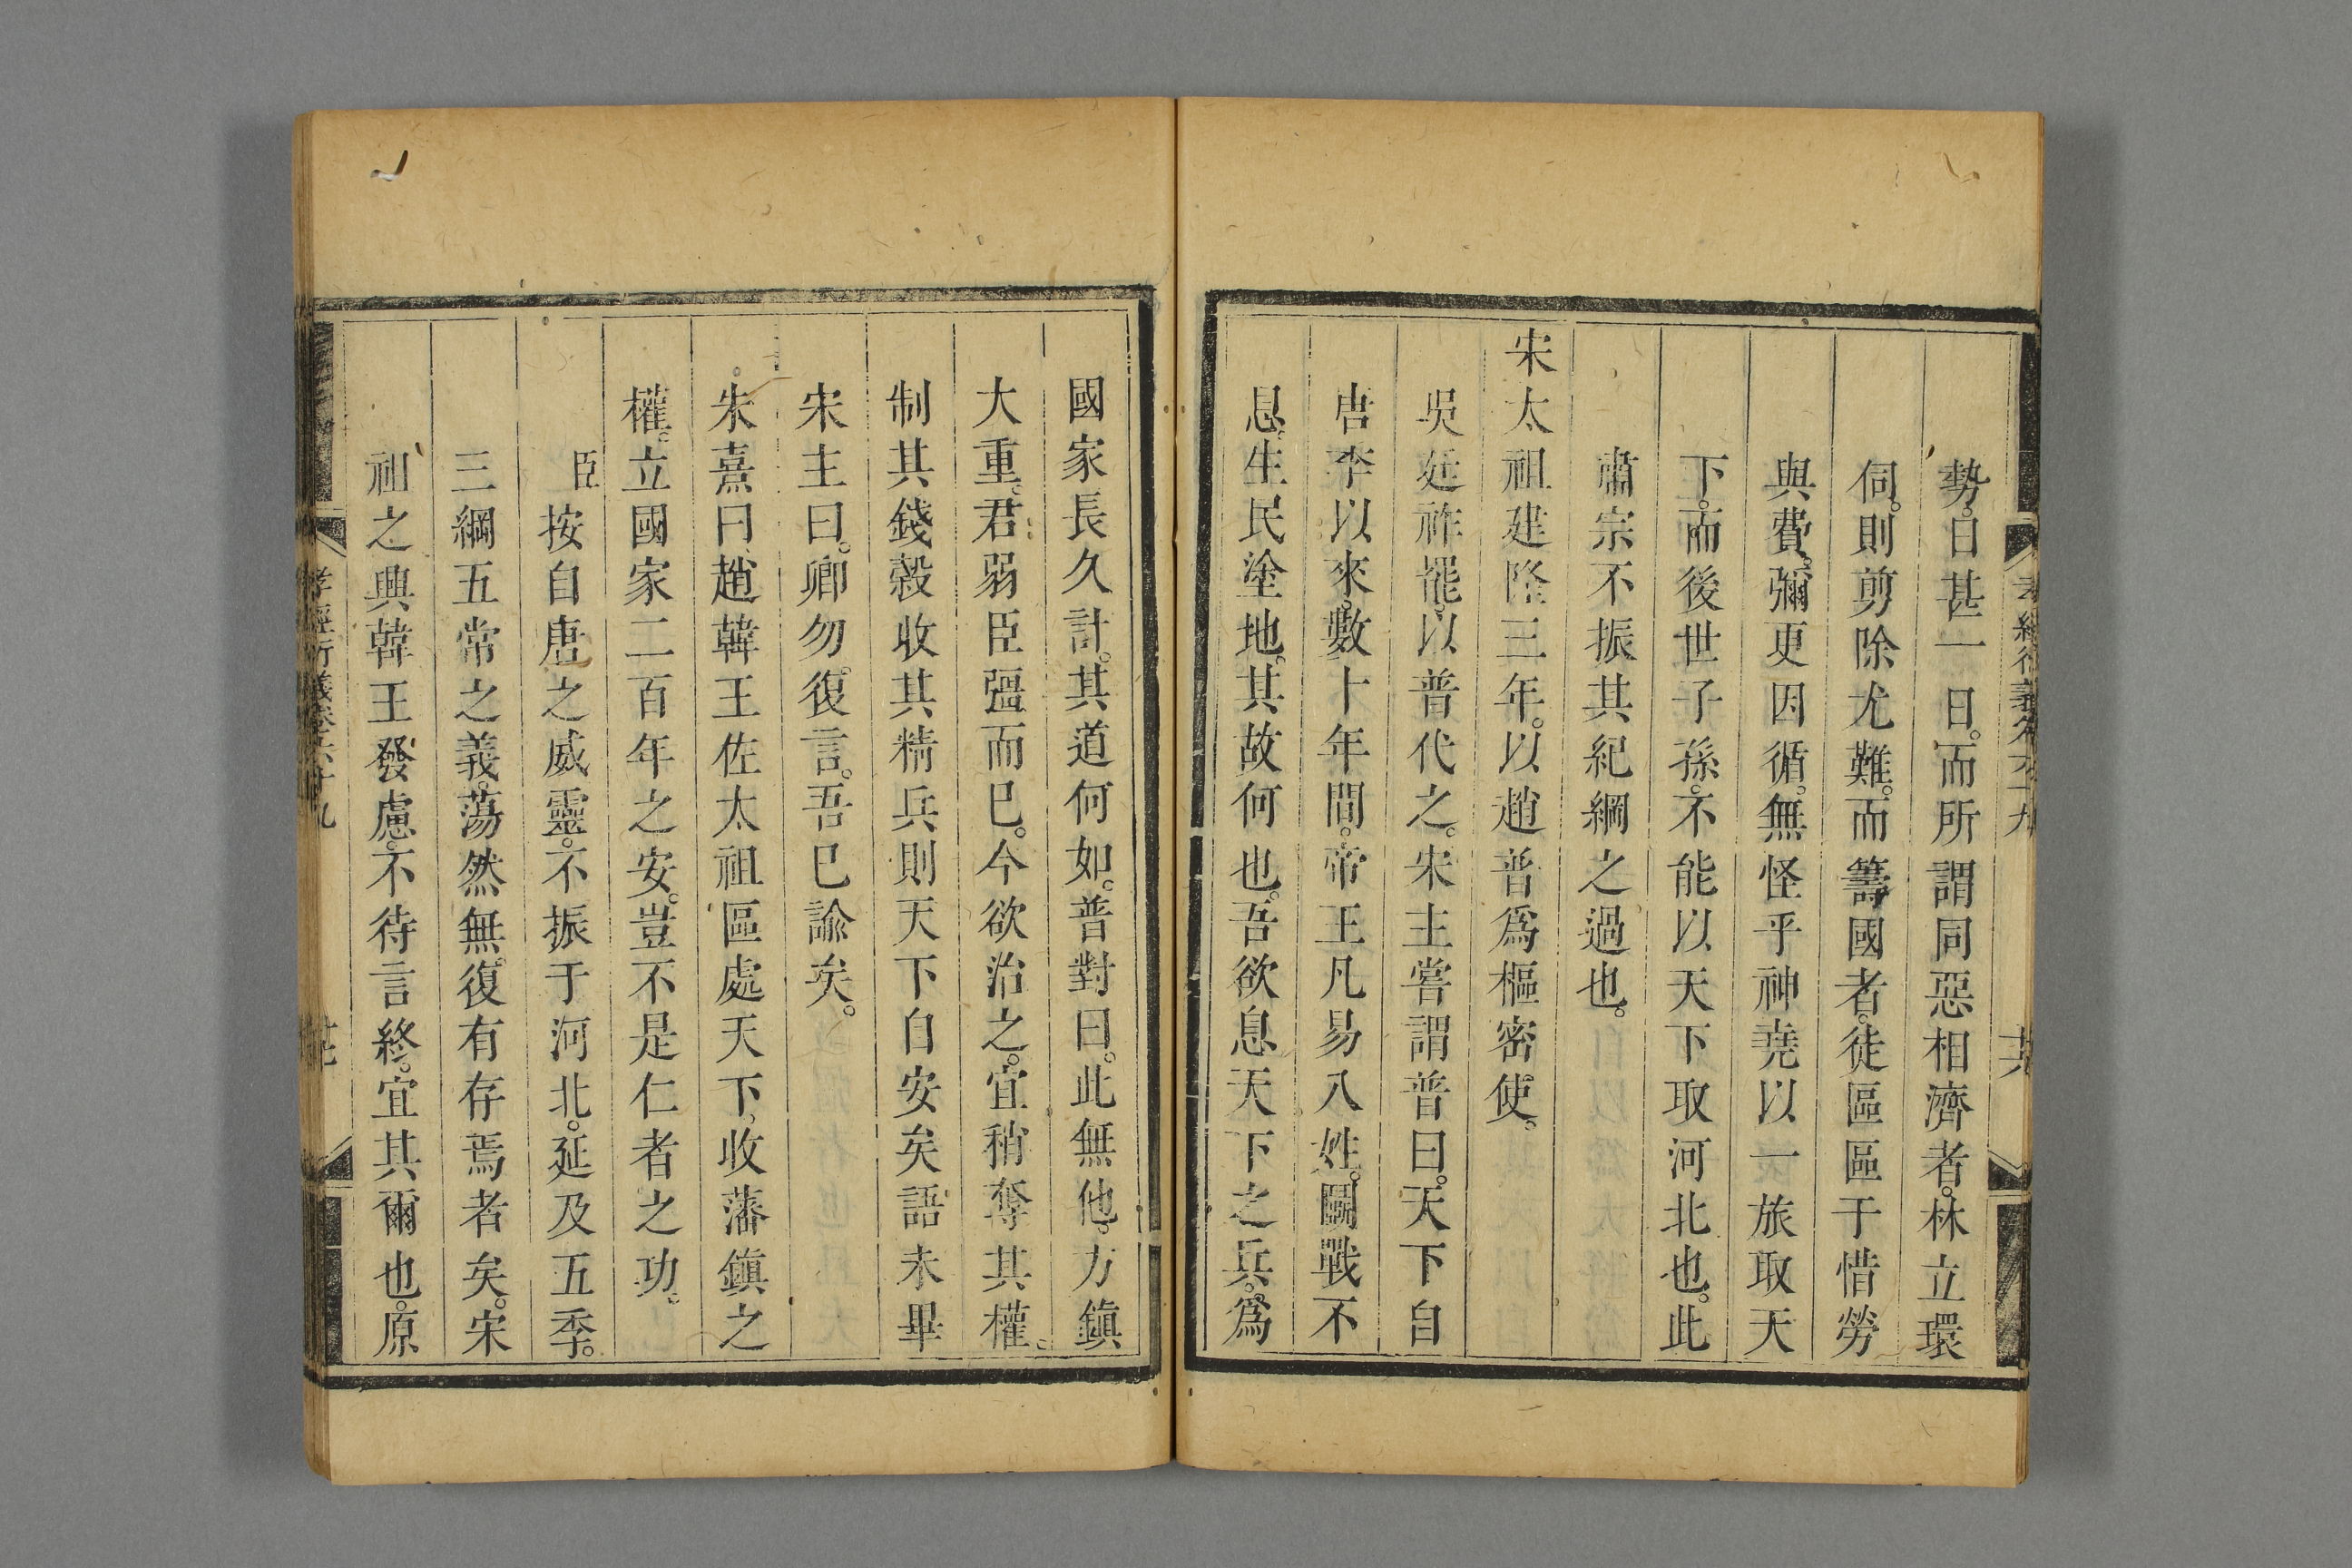 勢。日甚一日。而所謂同惡相濟者。林立環
伺。則剪除尤難。而籌國者。徒區區于惜勞
與費。彌更因循。無怪乎神堯以一旅取天
下。而後世子孫。不能以天下取河北也。此
肅宗不振其紀綱之過也。
宋太祖建隆三年。以趙普爲樞密使。
吳廷祚罷。以普代之。宋主嘗謂普曰。天下自
唐李以來。數十年間。帝王凡易八姓。鬬戰不
息。生民塗地。其故何也。吾欲息天下之兵。爲
國家長久計。其道何如。普對曰。此無他。方鎭
大重。君弱臣彊而已。今欲治之。宜稍奪其權。
制其錢穀收其精兵則天下自安矣語未畢
宋主曰。卿勿復言。吾已諭矣。
朱熹曰趙韓王佐太祖區處天下收藩鎭之
權。立國家二百年之安。豈不是仁者之功。
臣按自唐之威靈。不振于河北。延及五季。
三綱五常之義。蕩然無復有存焉者矣。宋
祖之興韓王發慮。不待言終。宜其爾也。原
孝經衍義卷六十九